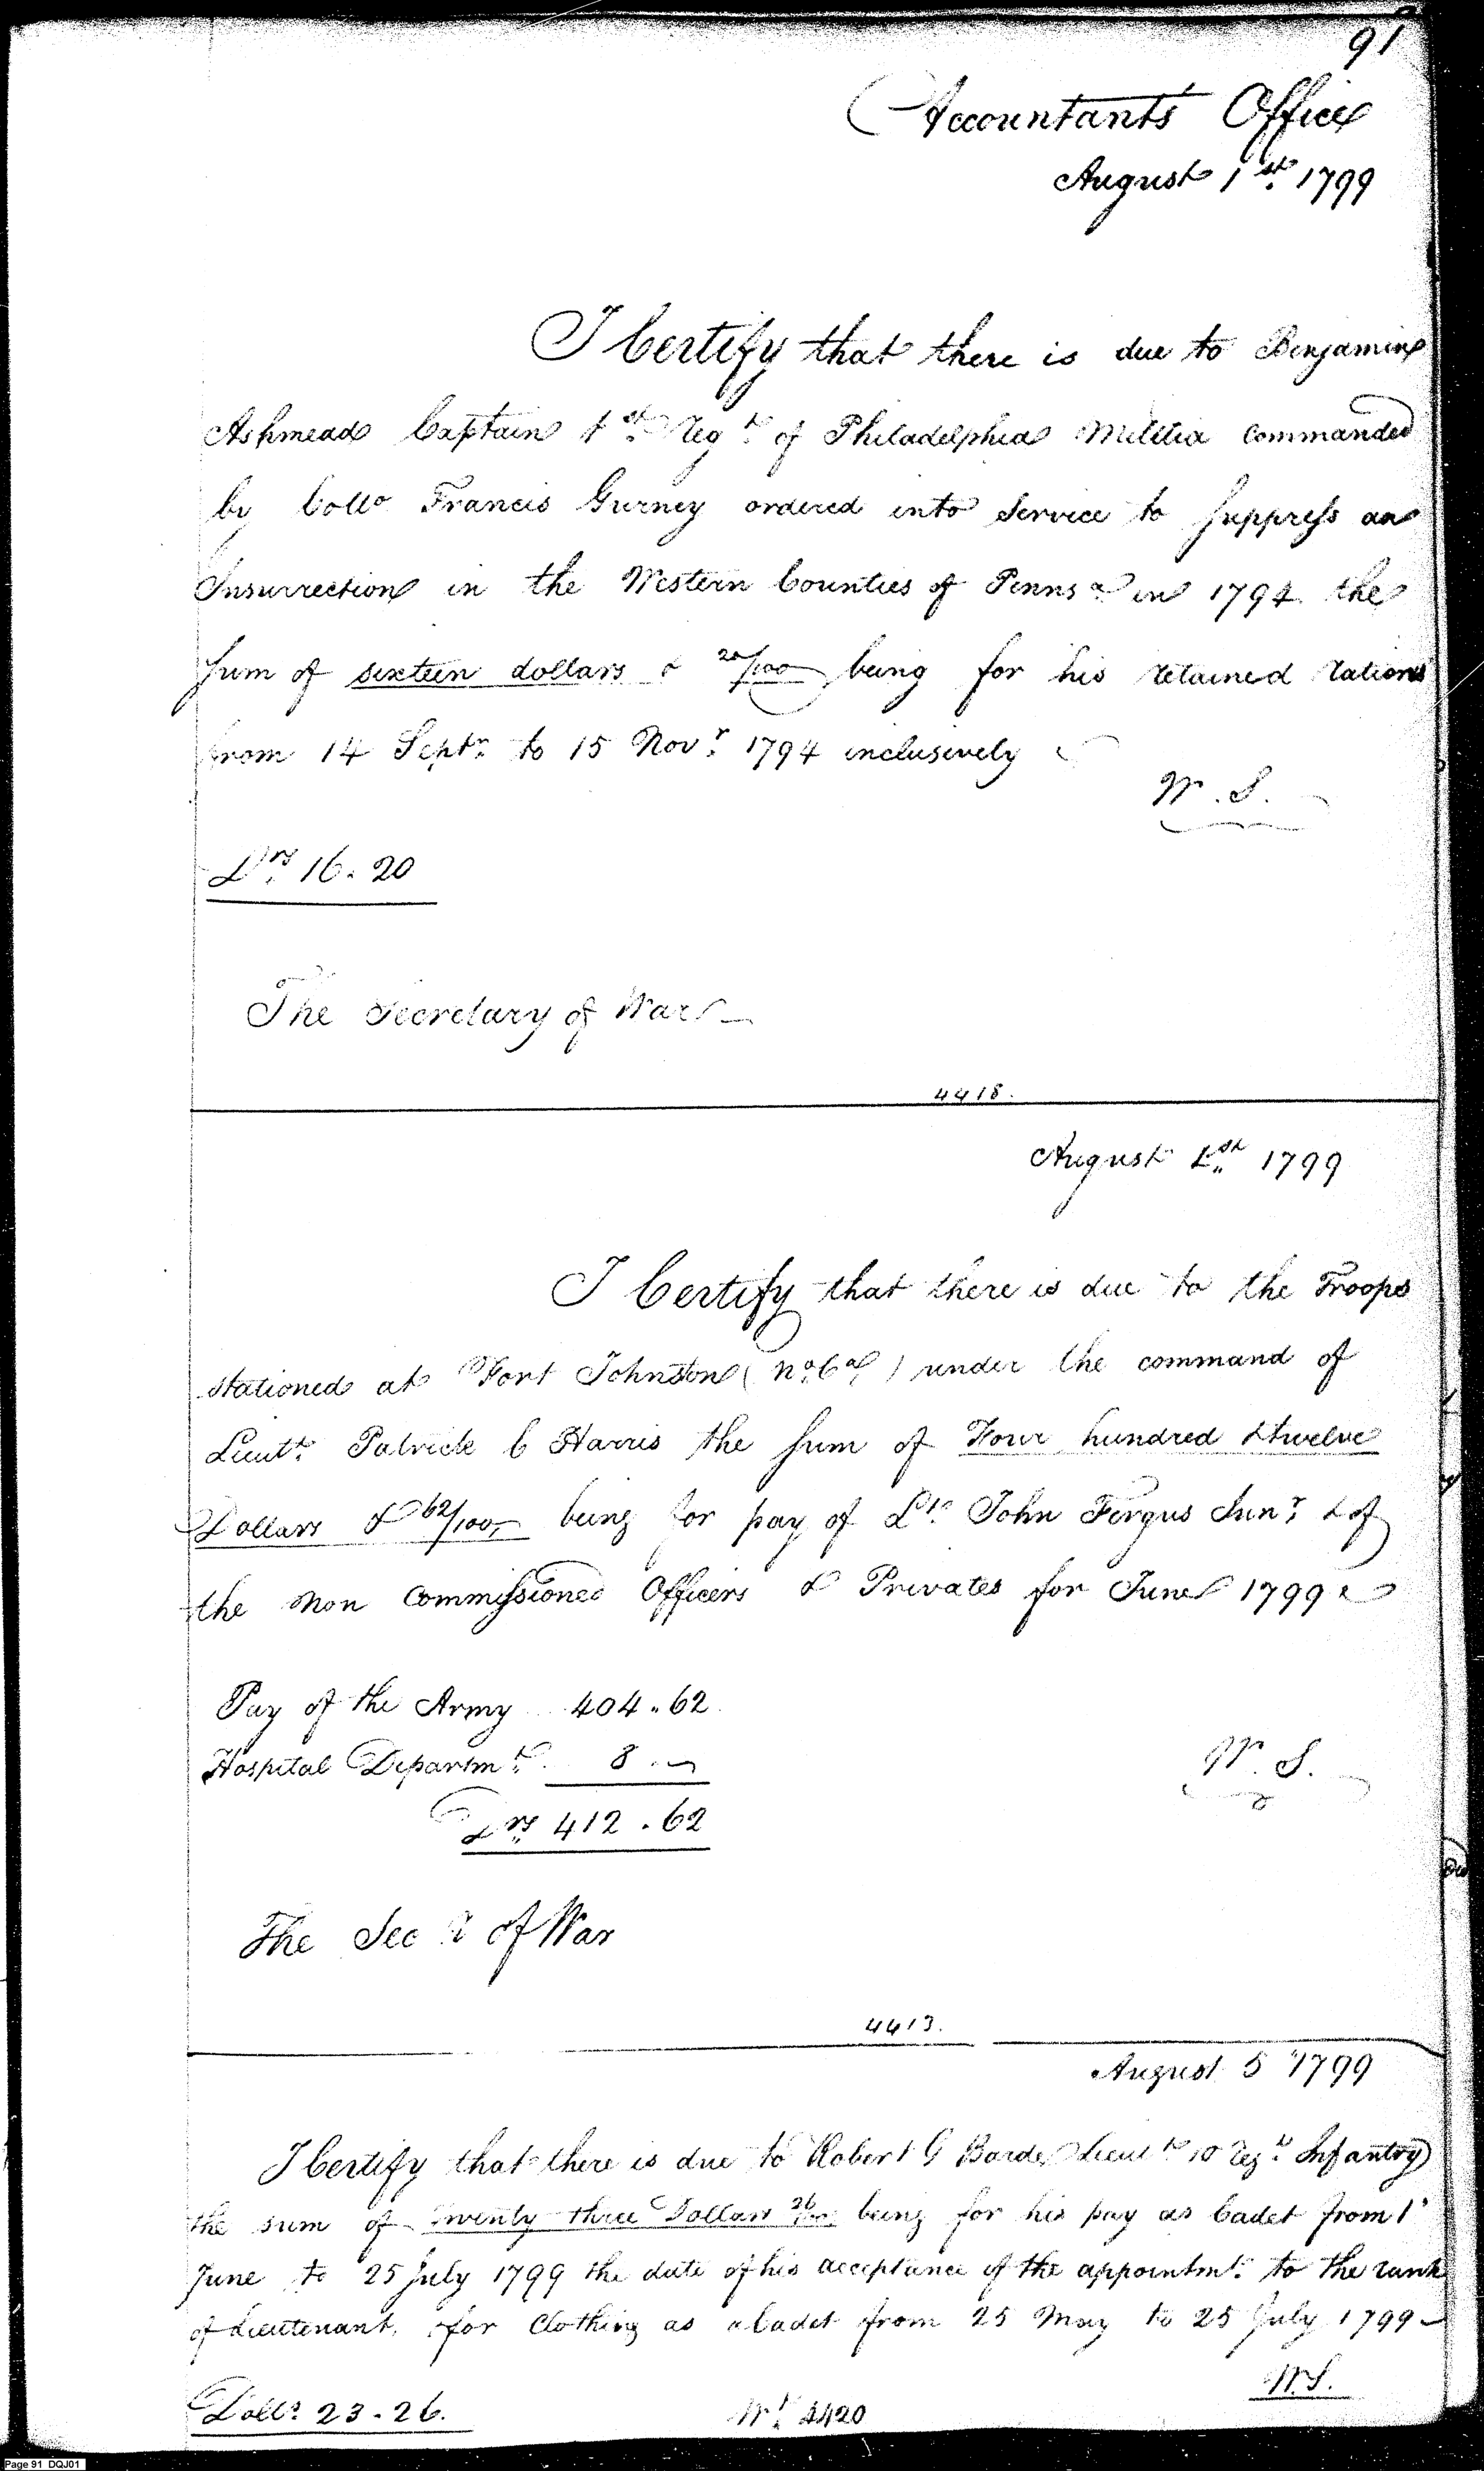 91
Accountants Office
August 1st 1799
I Certify that there is due to Benjamin
Ashmead Captain 1st Regt of Philadelphia Militia Commanded
by Collo Francis Gurney ordered into Service to Suppress an
Insurrection in the Western Counties of Pennsa in 1794 the
Sum of sixteen dollars & 20/100 being for his retained rations
from 14 Septr to 15 Novr 1794 inclusively
W. S.
Drs 16. 20
The Secretary of War
4418.
August 1st 1799
I Certify that there is due to the Troops
stationed at Fort Johnston (No Ca) under the command of
Lieutt Patrick C Harris the Sum of Four hundred & twelve
Dollars & 62/100 being for pay of Lt John Fergus Junr & of
the Non Commissioned Officers & Privates for June 1799
Pay of the Army 404.62
Hospital Departmt 8.
Drs 412.62
W. S.
The Secy of War
4413.
August 5 1799
I Certify that there is due to Robert G Barde Lieutt 10 Regt Infantry
the sum of Twenty three Dollars 26/100 being for his pay as Cadet from 1
June to 25 July 1799 the date of his acceptance of the appointmt to the rank
of Lieutenant, for Clothing as a Cadet from 25 May to 25 July 1799
W. S.
Dolls 23.26.
Wt 4420
Page 91 DQJ01